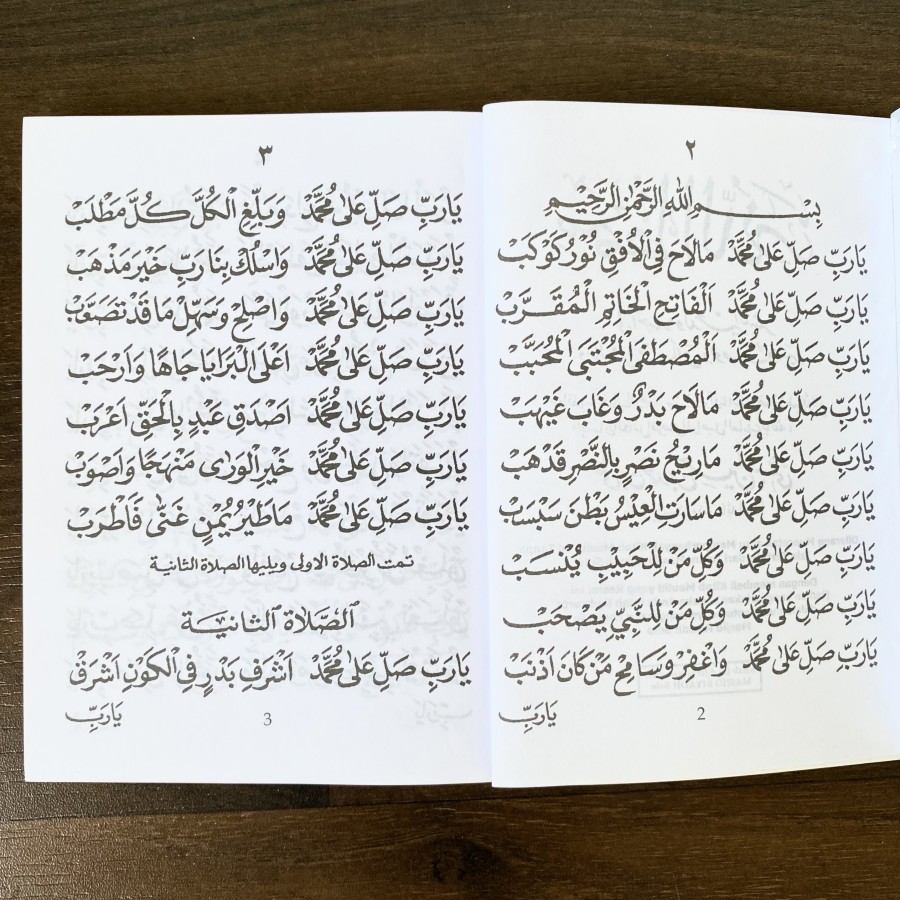 ٢
بِسْمِ اللهِ الرَّحْمٰنِ الرَّحِيْمِ
يَارَبِّ صَلِّ عَلٰى مُحَمَّدْ مَالَاحَ فِي الْاُفْقِ نُوْرُ كَوْكَبْ
يَارَبِّ صَلِّ عَلٰى مُحَمَّدْ اَلْفَاتِحِ الْخَاتِمِ الْمُقَرَّبْ
يَارَبِّ صَلِّ عَلٰى مُحَمَّدْ اَلْمُصْطَفَى الْمُجْتَبَى الْمُحَبَّبْ
يَارَبِّ صَلِّ عَلٰى مُحَمَّدْ مَالَاحَ بَدْرٌ وَغَابَ غَيْهَبْ
يَارَبِّ صَلِّ عَلٰى مُحَمَّدْ مَارِيْحُ نَصْرٍ بِالنَّصْرِ قَدْهَبْ
يَارَبِّ صَلِّ عَلٰى مُحَمَّدْ مَاسَارَتِ الْعِيْسُ بَطْنَ سَبْسَبْ
يَارَبِّ صَلِّ عَلٰى مُحَمَّدْ وَكُلِّ مَنْ لِلْحَبِيْبِ يُنْسَبْ
يَارَبِّ صَلِّ عَلٰى مُحَمَّدْ وَكُلِّ مَنْ لِلنَّبِيِّ يَصْحَبْ
يَارَبِّ صَلِّ عَلٰى مُحَمَّدْ وَاغْفِرْ وَسَامِحْ مَنْ كَانَ اَذْنَبْ
يَارَبِّ
2
٣
يَارَبِّ صَلِّ عَلٰى مُحَمَّدْ وَبَلِّغِ الْكُلَّ كُلَّ مَطْلَبْ
يَارَبِّ صَلِّ عَلٰى مُحَمَّدْ وَاسْلُكْ بِنَا رَبِّ خَيْرَ مَذْهَبْ
يَارَبِّ صَلِّ عَلٰى مُحَمَّدْ وَاصْلِحْ وَسَهِّلْ مَاقَدْ تَصَعَّبْ
يَارَبِّ صَلِّ عَلٰى مُحَمَّدْ اَعْلَى الْبَرَايَا جَاهًا وَاَرْحَبْ
يَارَبِّ صَلِّ عَلٰى مُحَمَّدْ اَصْدَقِ عَبْدٍ بِالْحَقِّ اَعْرَبْ
يَارَبِّ صَلِّ عَلٰى مُحَمَّدْ خَيْرِ الْوَرٰى مَنْهَجًا وَاَصْوَبْ
يَارَبِّ صَلِّ عَلٰى مُحَمَّدْ مَاطَيْرُ يُمْنٍ غَنّٰى فَاَطْرَبْ
تمت الصلاة الاولى ويليها الصلاة الثانية
اَلصَّلَاةُ الثَّانِيَة
يَارَبِّ صَلِّ عَلٰى مُحَمَّدْ اَشْرَفِ بَدْرٍ فِي الْكَوْنِ اَشْرَقْ
يَارَبِّ
3